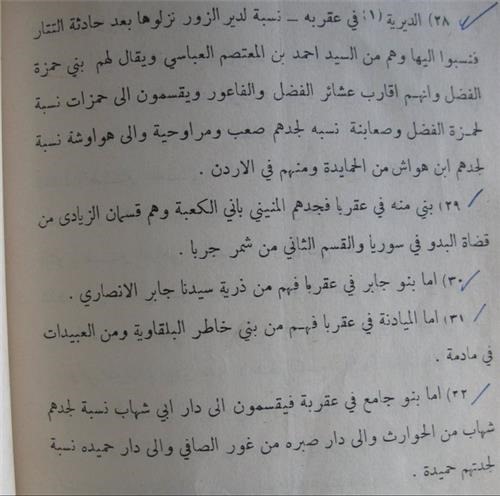 ٢٨) الديرية (١) في عقربه ــ نسبة لدير الزور نزلوها بعد حادثة التتار
فنسبوا اليها وهم من السيد احمد بن المعتصم العباسي ويقال لهم بني حمزة
الفضل وانهم اقارب عشائر الفضل والفاعور ويقسمون الى حمزات نسبة
لحمزة الفضل وصعابنة نسبه لجدهم صعب ومراوحية والى هواوشة نسبة
لجدهم ابن هواش من الحمايدة ومنهم في الاردن .
٢٩) بني منه في عقربا فجدهم المنيني باني الكعبة وهم قسمان الزيادى من
قضاة البدو في سوريا والقسم الثاني من شمر جربا .
٣٠) اما بنو جابر في عقربا فهم من ذرية سيدنا جابر الانصاري .
٣١) اما الميادنة في عقربا فهم من بني خاطر البلقاوية ومن العبيدات
في مادمة .
٣٢) اما بنو جامع في عقربة فيقسمون الى دار ابي شهاب نسبة لجدهم
شهاب من الحوارث والى دار صبره من غور الصافي والى دار حميده نسبة
لجدتهم حميدة .